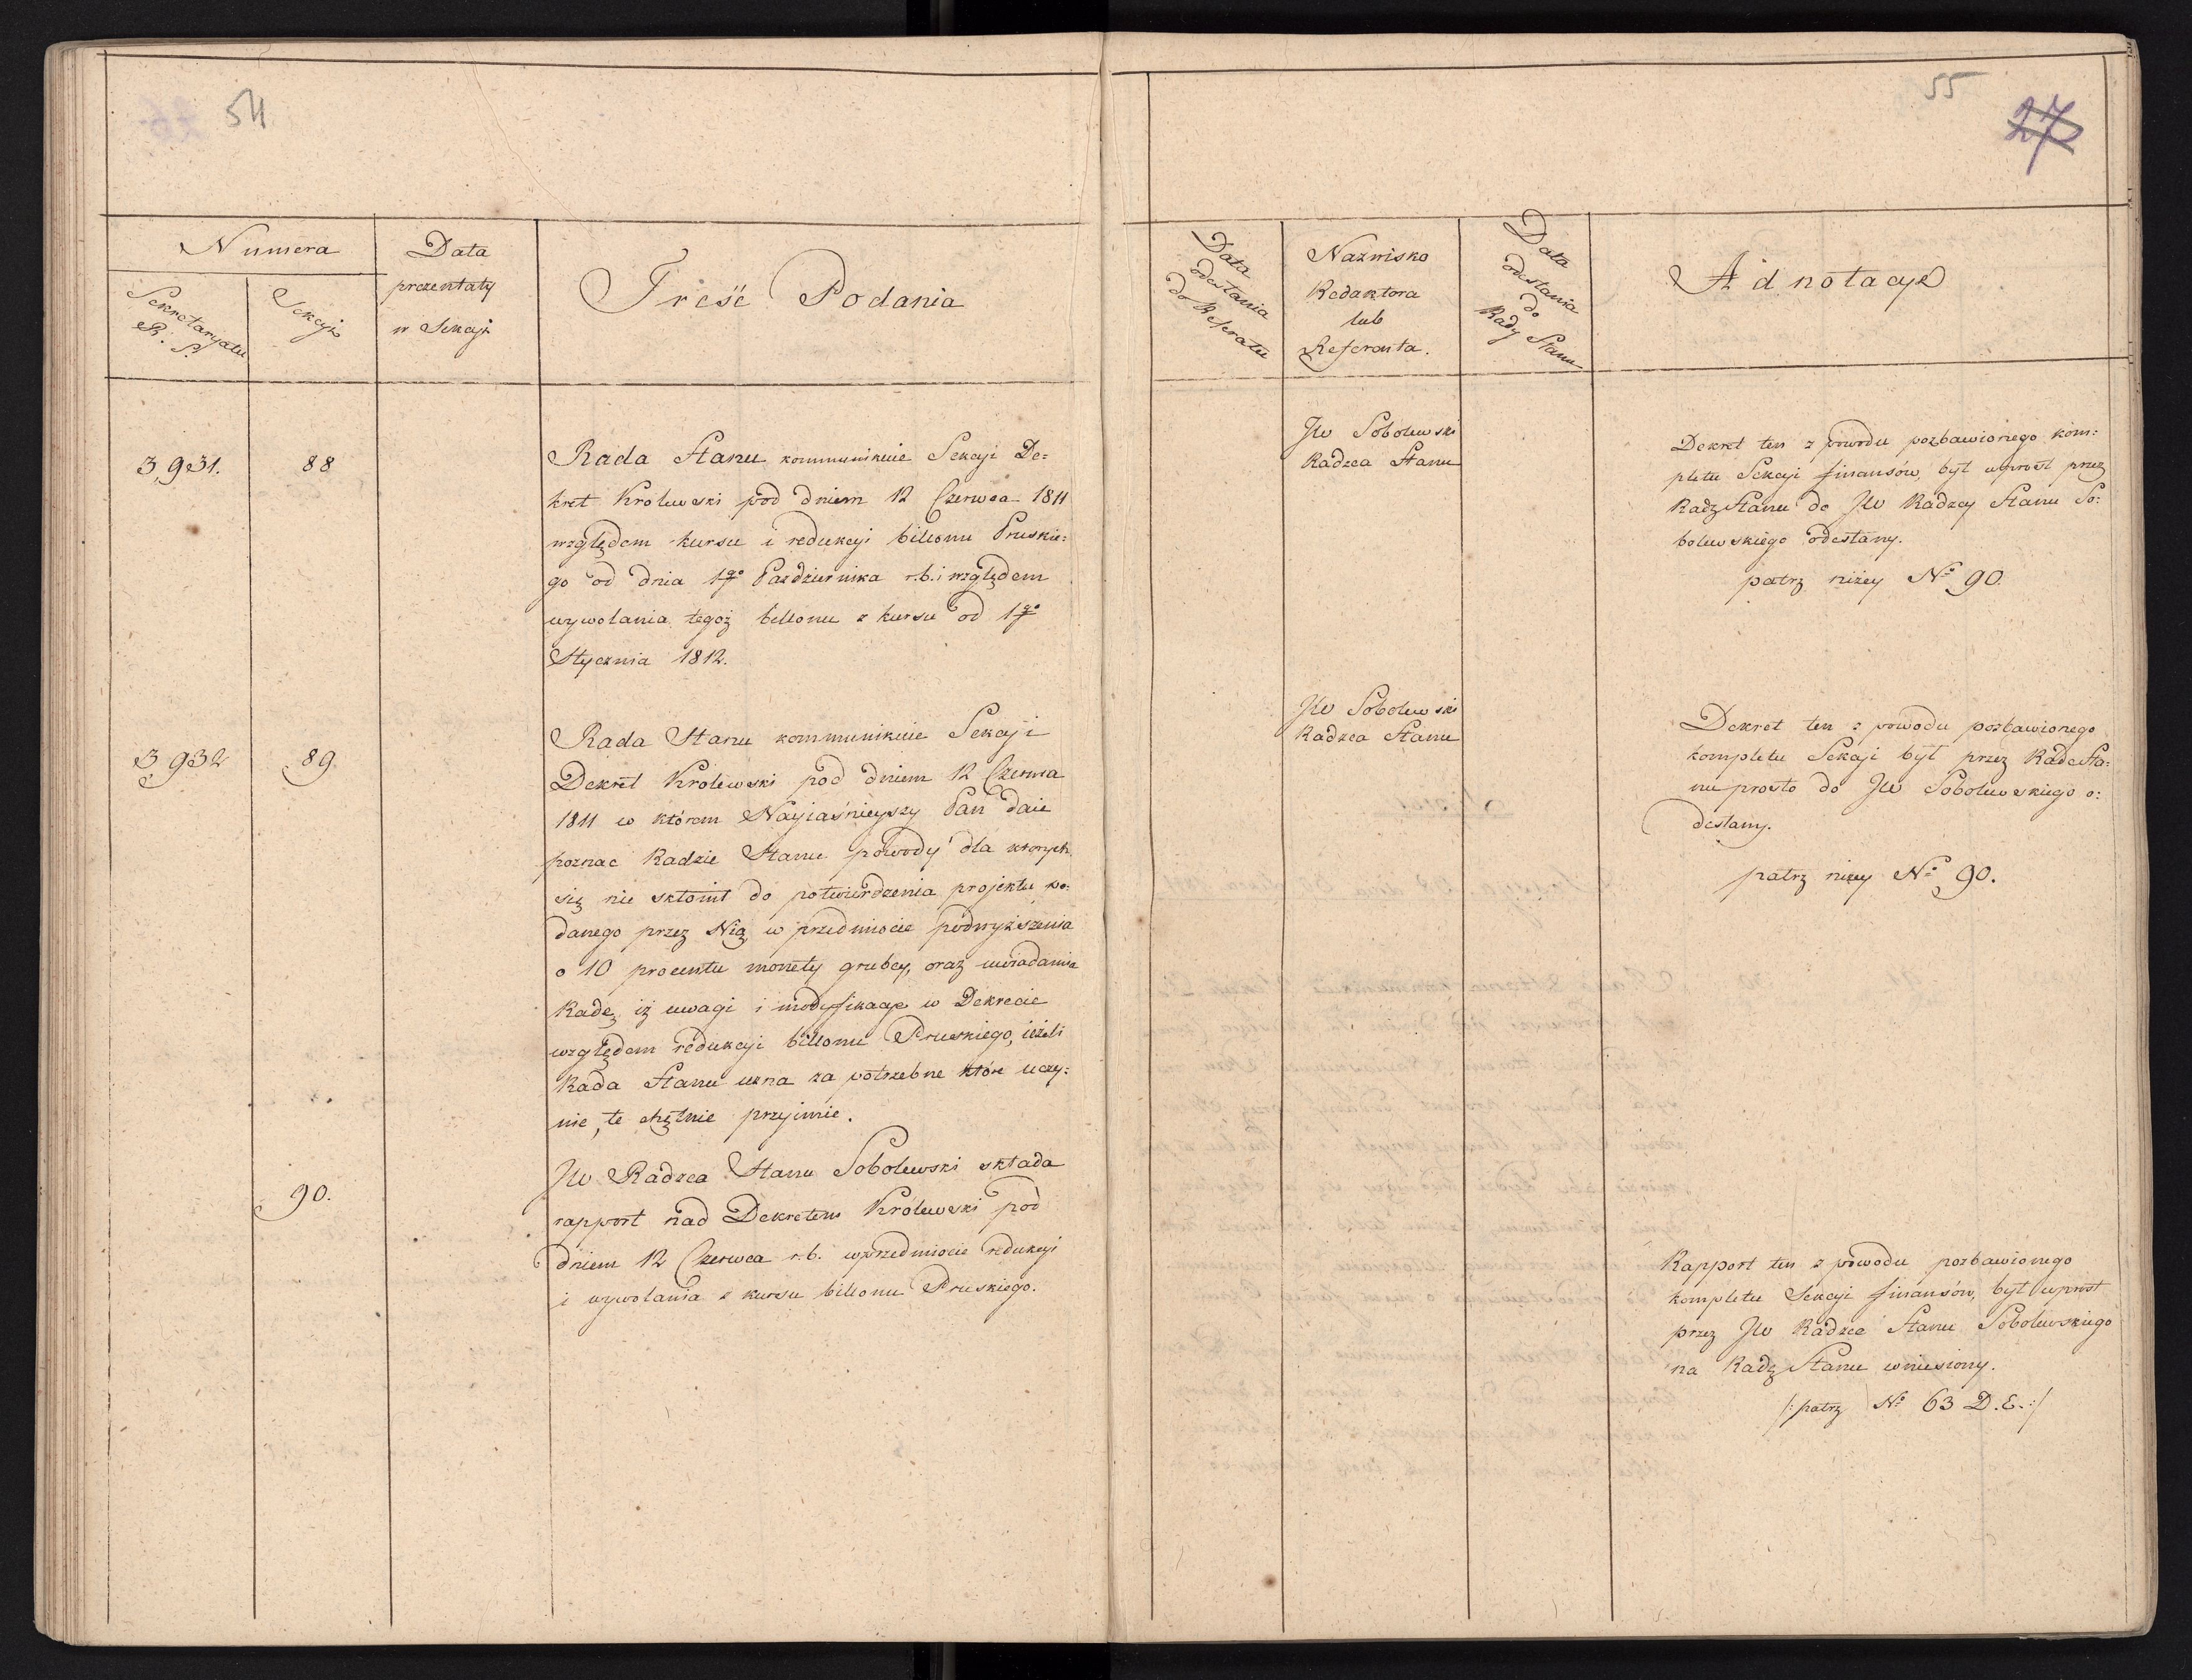 54
Numera
Sekretaryatu
R. S.
Sekcyi
Data
prezentaty
w Sekcyi
Treść Podania
3,931.
88
Rada Stanu kommunikuie Sekcyi De:
kret Krolewski pod dniem 12 Czerwca 1811
względem kursu i redukcyi billonu Pruskie:
go od dnia 1go Pazdziernika r.b. i względem
wywołania tegoż billonu z kursu od 1go
Stycznia 1812.
3932
89
Rada Stanu kommunikuie Sekcyi
Dekret Krolewski pod dniem 12 Czerwca
1811 w którem Nayiaśnieyszy Pan daie
poznac Radzie Stanu powody dla ktorych
się nie skłonił do potwierdzenia projektu po:
danego przez Nią, w przedmiocie podwyższenia
o 10 procentu monety grubey, oraz uwiadamia
Radę, iż uwagi i modyfikacye w Dekrecie
względem redukcyi billonu Pruskiego, ieżeli
Rada Stanu uzna za potrzebne które uczy:
nic, te chętnie przyimie.
90.
JW Radzca Stanu Sobolewski składa
rapport nad Dekretem Królewski pod
dniem 12 Czerwca r.b. w przedmiocie redukcyi
i wywołania z kursu billonu Pruskiego.
55
27
Data
odesłania
do Referatu
Nazwisko
Redaktora
lub
Referenta.
Data
odesłania
do
Rady Stanu
Adnotacye
JW Sobolewski
Radzca Stanu
Dekret ten z powodu pozbawionego kom:
pletu Sekcyi finansów, był wprost przez
Radę Stanu do JW Radzcy Stanu So:
bolewskiego odesłany.
patrz niżey No 90.
JW Sobolewski
Radzca Stanu
Dekret ten z powodu pozbawionego
kompletu Sekcyi był przez Radę Sta:
nu prosto do JW Sobolewskiego o:
desłany.
patrz niżey No 90.
Rapport ten z powodu pozbawionego
kompletu Sekcyi finansów, był wprost
przez JW Radzce Stanu Sobolewskiego
na Radę Stanu wniesiony.
/: patrz No 63 D.E. :/